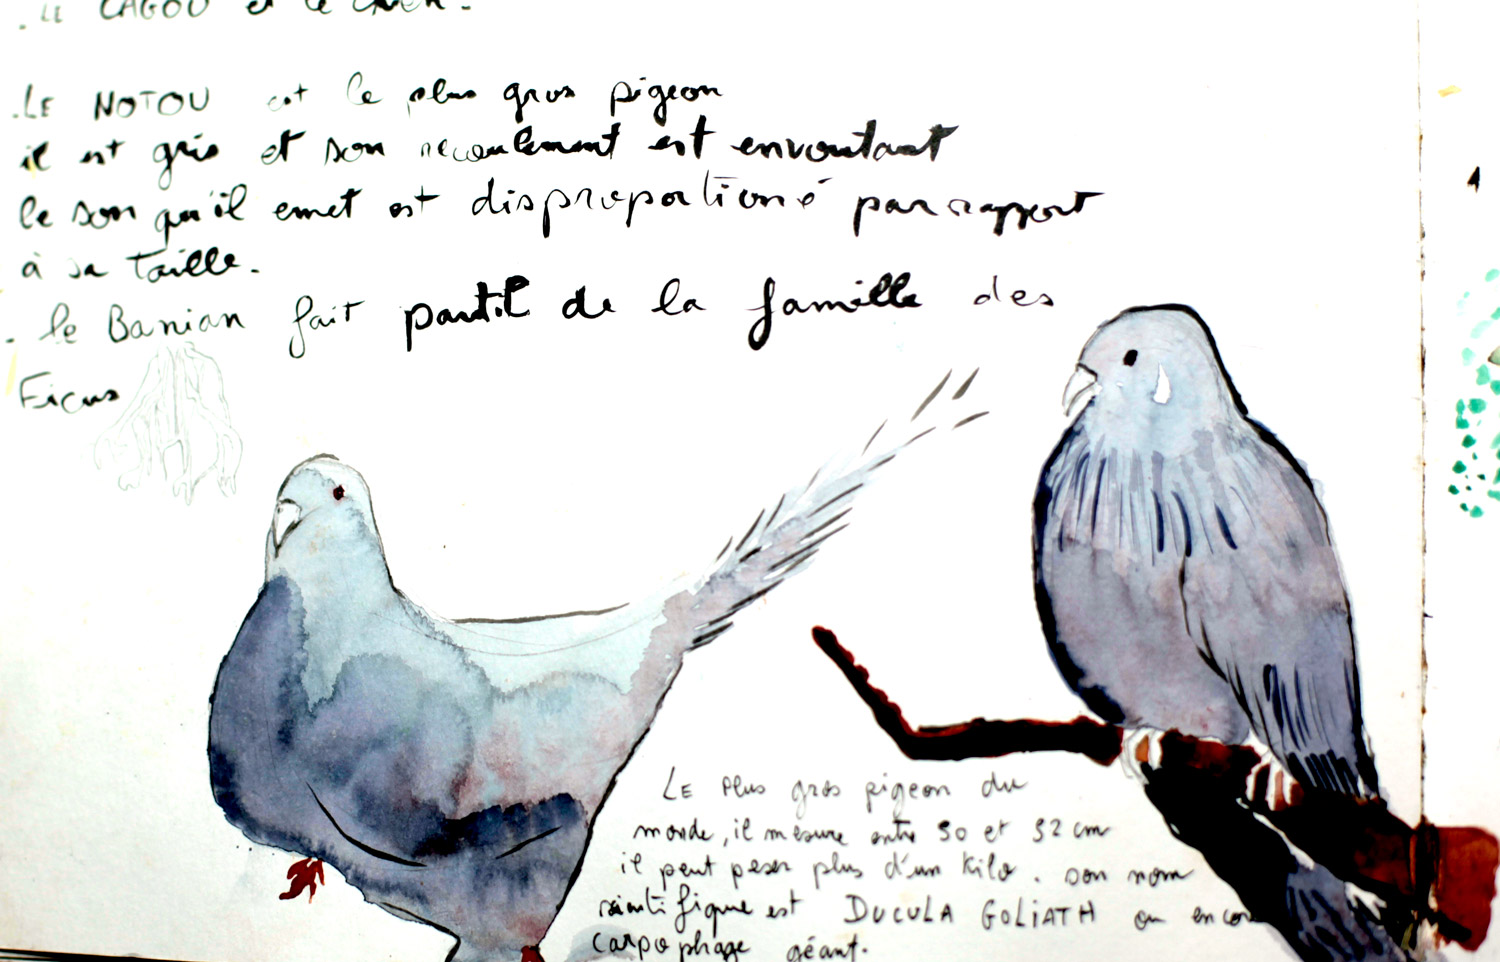 . LE CAGOU et le
. LE NOTOU est le plus gros pigeon
il est gris et son recoulement est envoutant
le son qu'il emet est disproportioné par rapport
à sa Taille.
. le Banian fait partie de la famille des
Ficus
LE Plus gros pigeon du
monde, il mesure entre 50 et 52 cm
il peut peser plus d'un kilo. son nom
scientifique est DUCULA GOLIATH ou encore
carpophage géant.